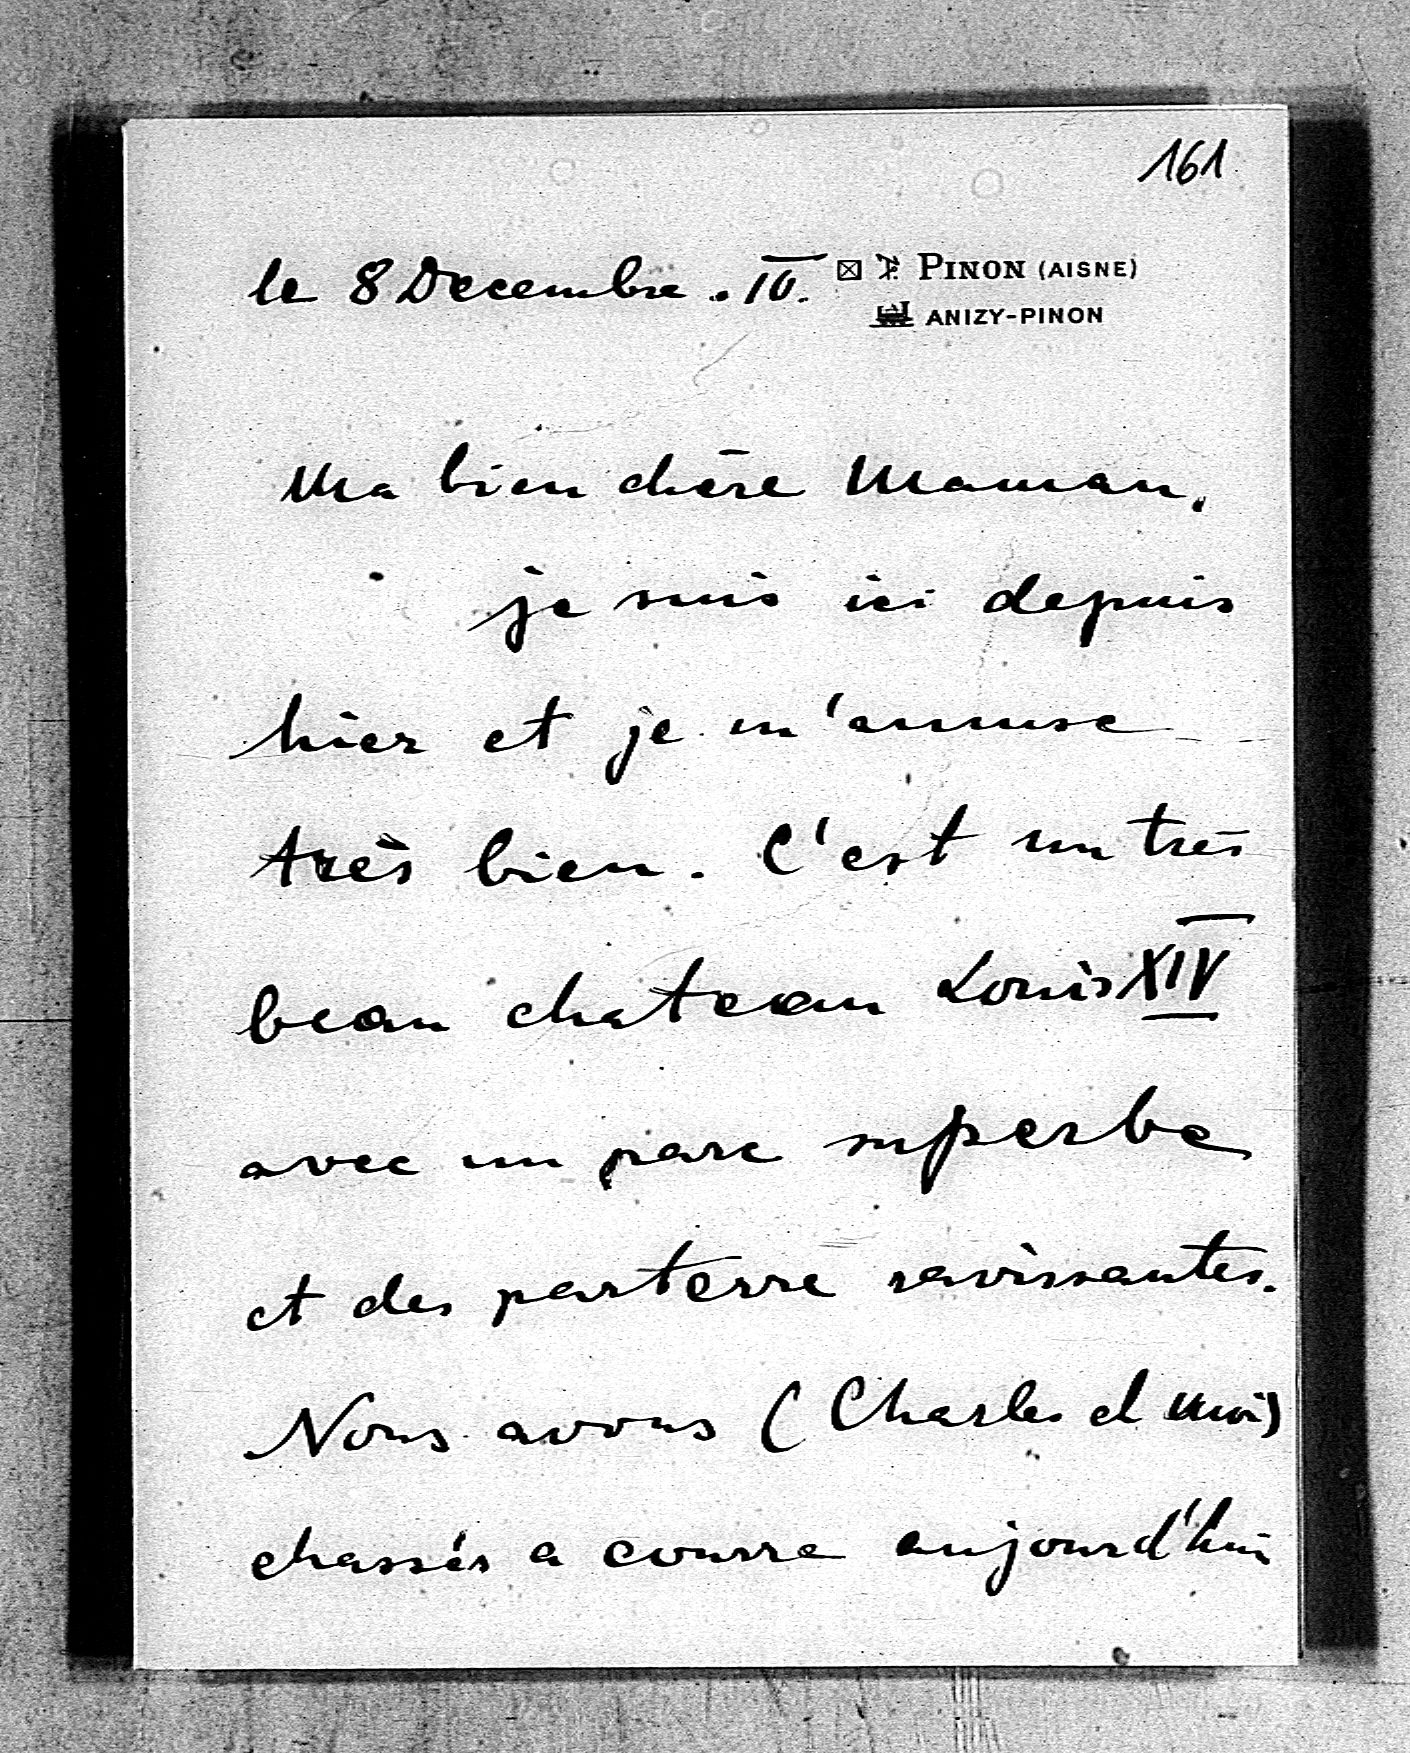 161
le 8 Decembre . 10. PINON (AISNE)
ANIZY-PINON
Ma bien chère Maman,
je suis ici depuis
hier et je m'amuse
très bien. C'est un très
beau chateau Louis XIV
avec un parc superbe
et des parterre ravissantes.
Nous avons (Charles et moi)
chassés a courre aujourd'hui